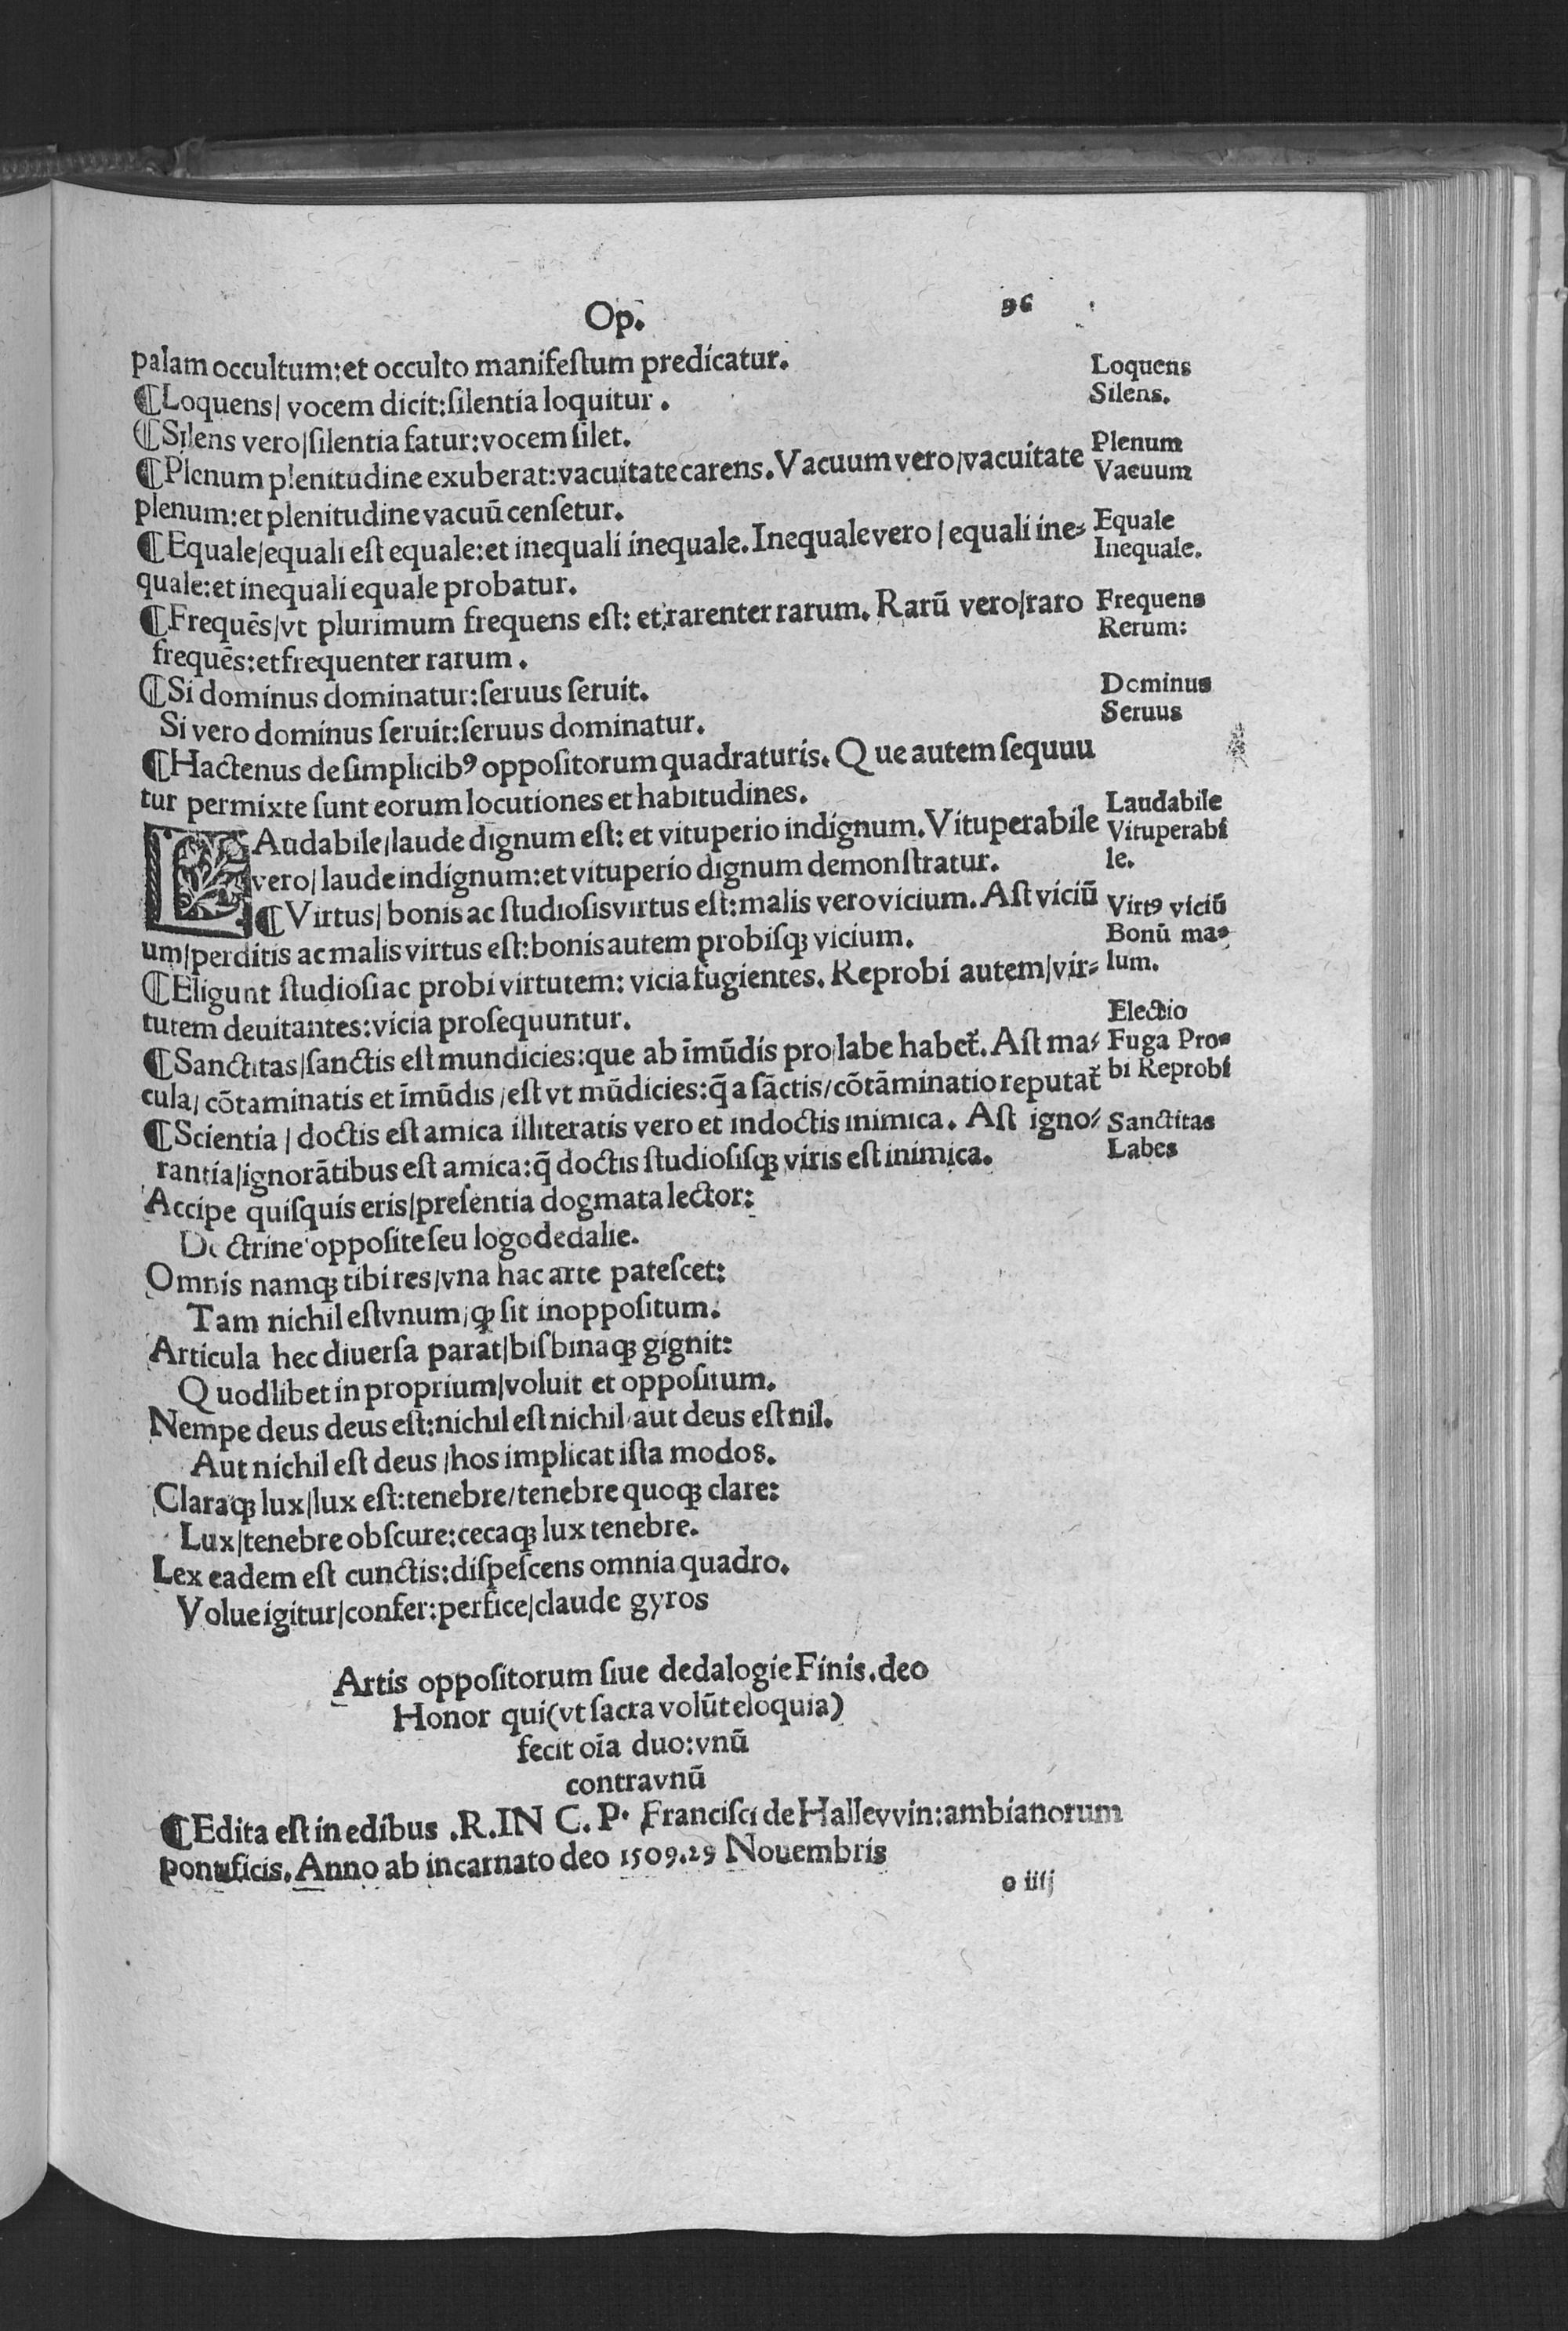 Op.
96
palam occultum: et occulto manifeſtum predicatur.
¶Loquens/ vocem dicit: ſilentia loquitur.
¶Silens vero/ſilentia fatur: vocem ſilet.
¶Plenum plenitudine exuberat: vacuitate carens. Vacuum vero/vacuitate
plenum: et plenitudine vacuū cenſetur.
¶Equale/equali eſt equale: et inequali inequale. Inequale vero / equali ine⸗
quale: et inequali equale probatur.
¶Frequēs/vt plurimum frequens eſt: et rarenter rarum. Rarū vero/raro
frequēs: et frequenter rarum.
¶Si dominus dominatur: ſeruus ſeruit.
Si vero dominus ſeruit: ſeruus dominatur.
¶Hactenus de ſimplicibꝰ oppoſitorum quadraturis. Que autem ſequuu
tur permixte ſunt eorum locutiones et habitudines.
LAudabile/laude dignum eſt: et vituperio indignum. Vituperabile
vero/ laude indignum: et vituperio dignum demonſtratur.
¶Virtus/ bonis ac ſtudioſis virtus eſt: malis vero vicium. Aſt viciū
um/perditis ac malis virtus eſt: bonis autem probiſqꝫ vicium.
¶Eligunt ſtudioſi ac probi virtutem: vicia fugientes. Reprobi autem/vir⸗
tutem deuitantes: vicia proſequuntur.
¶Sanctitas/ſanctis eſt mundicies: que ab īmūdis pro labe habet᷑. Aſt ma⸗
cula/ cōtaminatis et īmūdis /eſt vt mūdicies: q̄ a ſāctis/cōtāminatio reputat᷑
¶Scientia / doctis eſt amica illiteratis vero et indoctis inimica. Aſt igno⸗
rantia/ignorātibus eſt amica: q̄ doctis ſtudioſiſqꝫ viris eſt inimica.
Accipe quiſquis eris/preſentia dogmata lector:
Doctrine oppoſite ſeu logodedalie.
Omnis namqꝫ tibi res/vna hac arte pateſcet:
Tam nichil eſt vnum/ qꝫ ſit inoppoſitum.
Articula hec diuerſa parat/biſbinaqꝫ gignit:
Quodlibet in proprium/voluit et oppoſitum.
Nempe deus deus eſt: nichil eſt nichil/aut deus eſt nil.
Aut nichil eſt deus /hos implicat iſta modos.
Claraqꝫ lux/lux eſt: tenebre/tenebre quoqꝫ clare:
Lux/tenebre obſcure: cecaqꝫ lux tenebre.
Lex eadem eſt cunctis: diſpeſcens omnia quadro.
Volue igitur/confer: perfice/claude gyros
Artis oppoſitorum ſiue dedalogie Finis. deo
Honor qui (vt ſacra volūt eloquia)
fecit oīa duo: vnū
contra vnū
¶Edita eſt in edibus .R. IN C. P. Franciſci de Hallevvin: ambianorum
pontificis. Anno ab incarnato deo 1509. 29 Nouembris
o iiij
Loquens
Silens.
Plenum
Vacuum
Equale
Inequale.
Frequens
Rerum:
Dominus
Seruus
Laudabile
Vituperabi
le.
Virtꝰ viciū
Bonū ma⸗
lum.
Electio
Fuga Pro⸗
bi Reprobi
Sanctitas
Labes